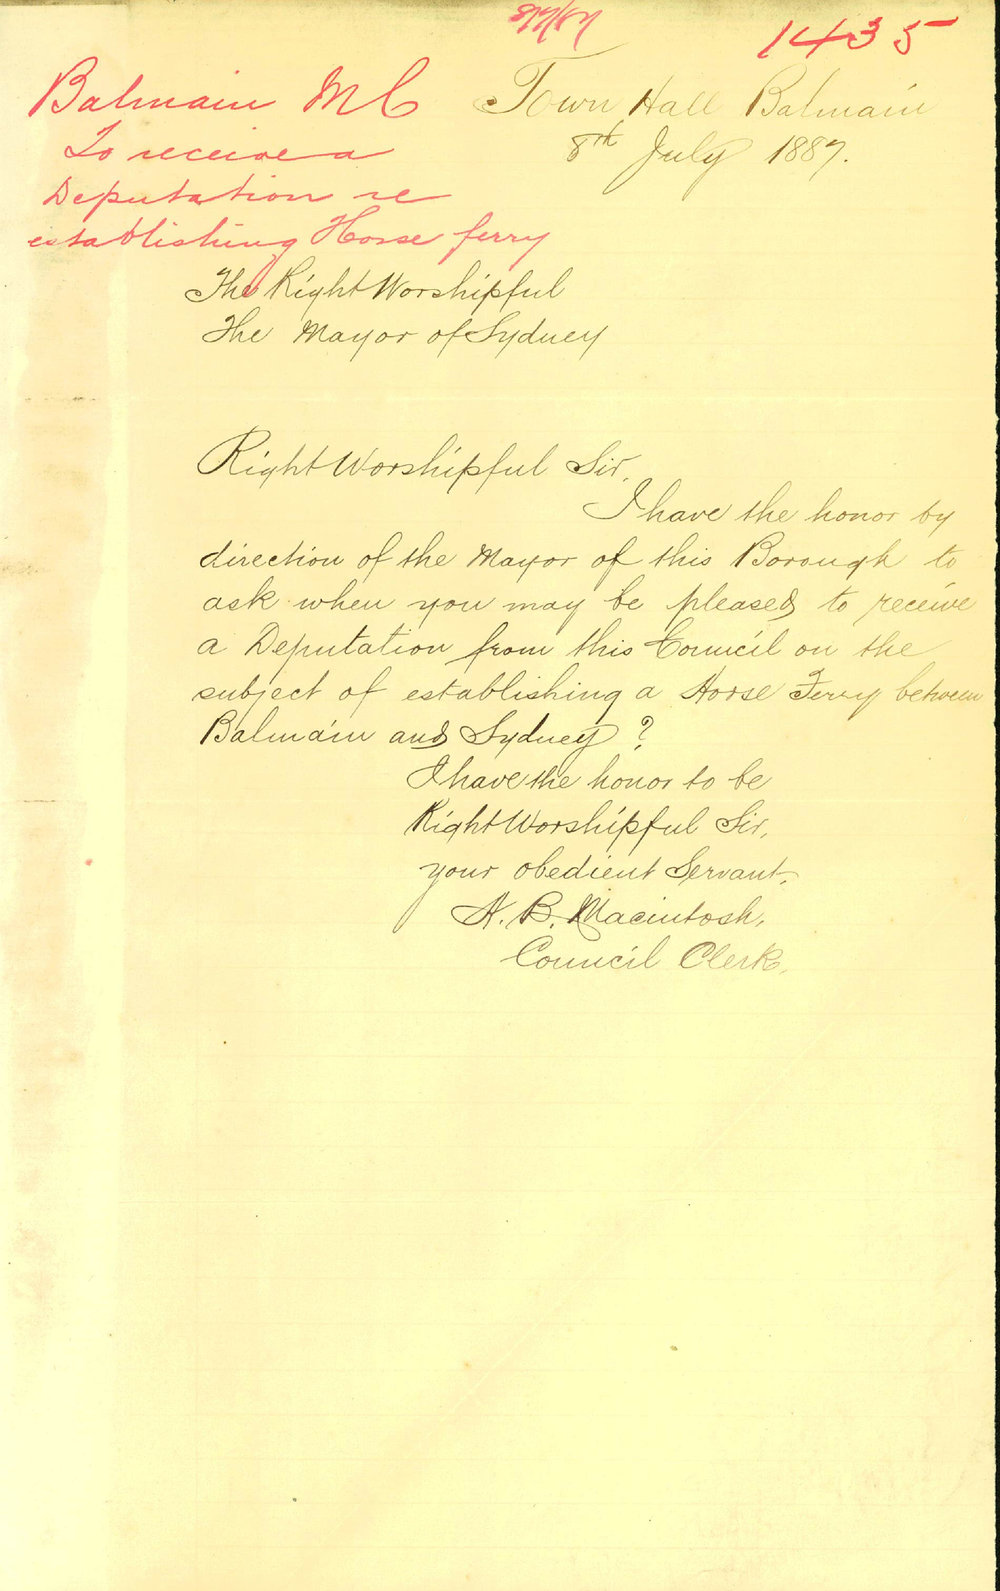 1435
Balmain M C
To receive a
Deputation re
establishing Horse ferry
Town Hall Balmain
8th July 1887.
The Right Worshipful
The Mayor of Sydney
Right Worshipful Sir,
I have the honor by
direction of the Mayor of this Borough to
ask when you may be pleased to receive
a Deputation from this Council on the
subject of establishing a Horse Ferry between
Balmain and Sydney ?
I have the honor to be
Right Worshipful Sir,
your obedient Servant,
A. B. Macintosh,
Council Clerk.